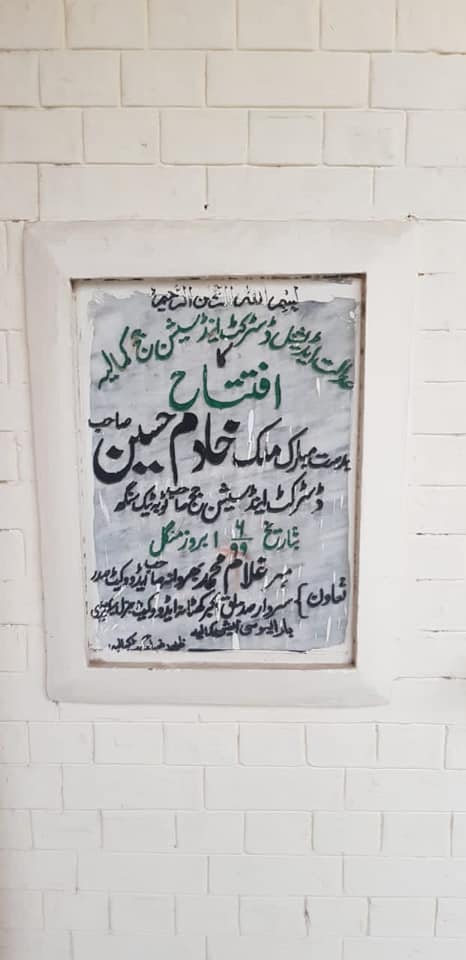 بسم اللہ الرحمن الرحیم
عدالت ایڈیشنل ڈسٹرکٹ اینڈ سیشن جج کمالیہ
کا
افتتاح
بدست مبارک ملک خادم حسین صاحب
ڈسٹرکٹ اینڈ سیشن جج صاحب ٹوبہ ٹیک سنگھ
بتاریخ ۱ ۶/۹۹ بروز منگل
مہر غلام محمد بھروانہ صاحب ایڈووکیٹ صدر
تعاون } سردار صدیق اکبر ایڈووکیٹ جنرل سیکرٹری
بار ایسوسی ایشن کمالیہ